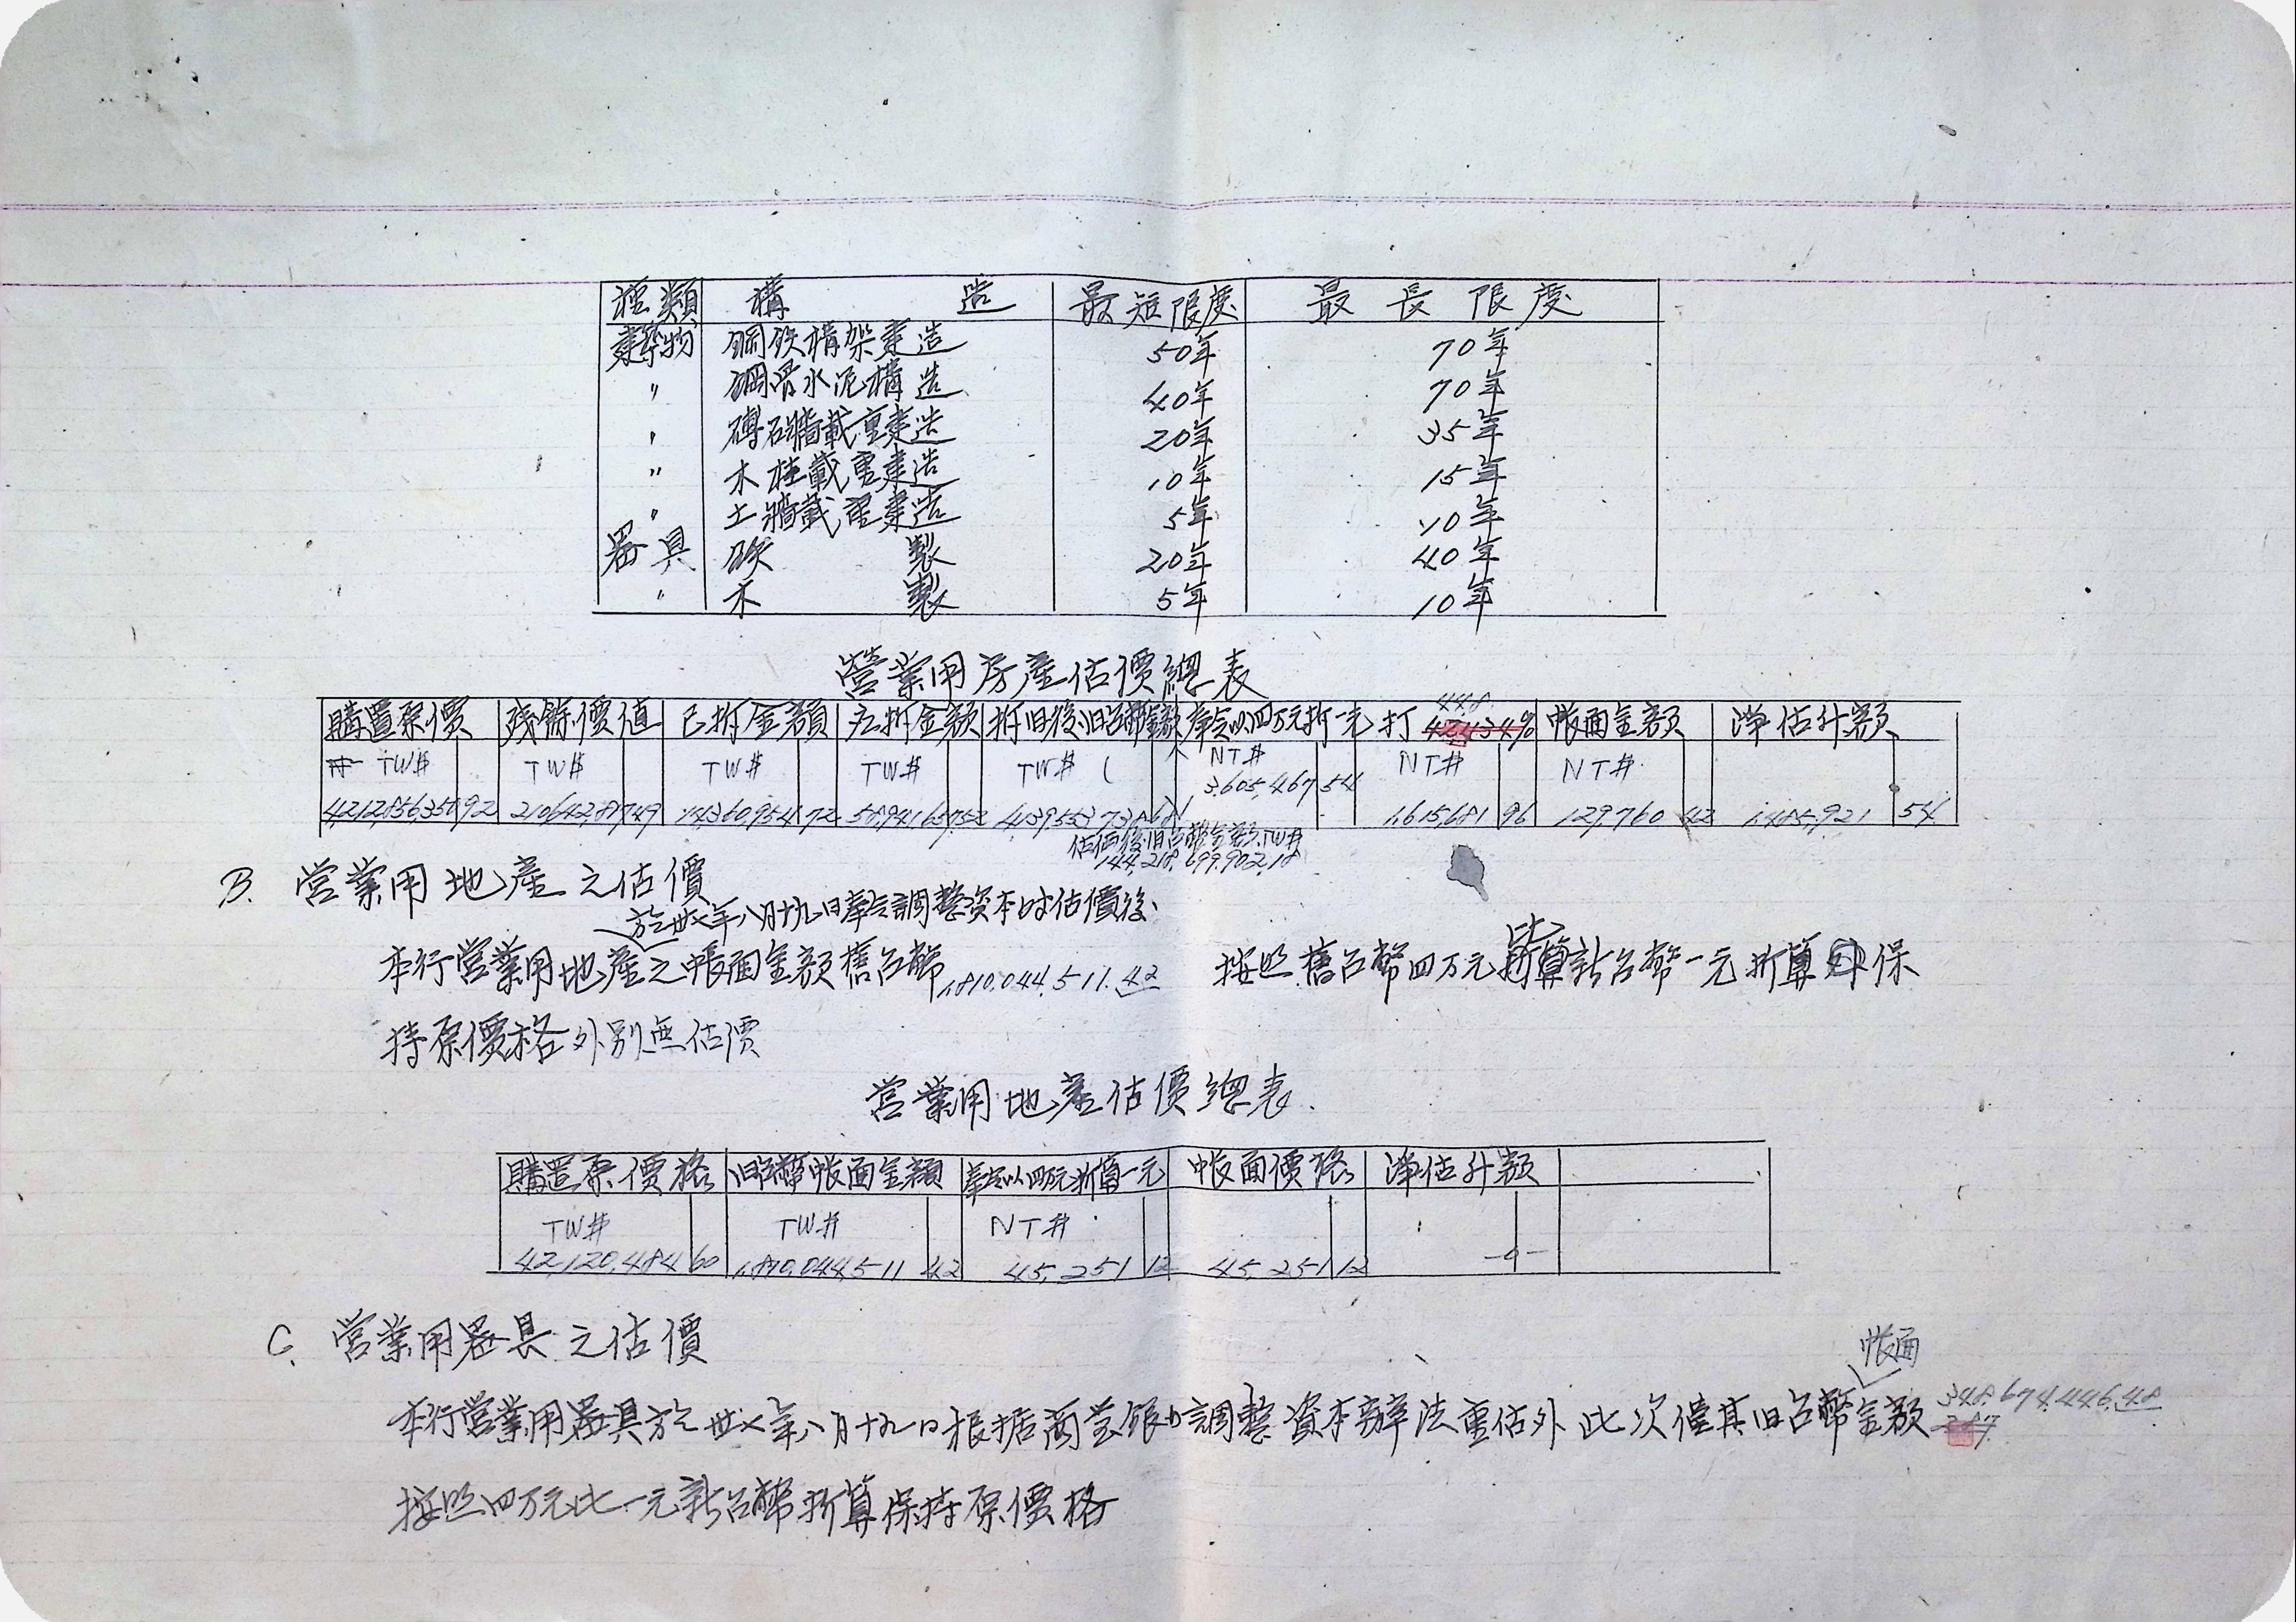 種類 構造 最短限度 最長限度
建築物 鋼鉄構架建造 50年 70年
〃 鋼骨水泥構造 40年 70年
〃 磚石牆載重建造 20年 35年
〃 木柱載重建造 10年 15年
〃 土牆載重建造 5年 10年
器具 鉄製 20年 40年
〃 木製 5年 10年
營業用房產估價總表
44.8
購置原價 殘餘價值 已折金額 應折金額 折旧後旧台幣金額 奉令以四万元折一元 打 % 帳面金額 淨估升額
TW$ TW$ TW$ TW$ TW$ NT$ NT$ NT$
3,605,467 54
1,615,681 96 129,760 42 1,485,921 54
估価後旧台幣金額TW$
144,218,699,902.18
B. 営業用地產之估價
於卅七年八月十九日奉令調整資本時估價後
本行営業用地產之帳面金額舊台幣1,810,044,511.42 按照舊台幣四万元折算新台幣一元折算 保
持原價格外別無估價
営業用地產估價總表.
購置原價格 旧台幣帳面金額 奉令以四万元折算一元 帳面價格 淨估升額
TW$ TW$ NT$
42,120,484 60 1,810,044,511 42 45,251 12 45,251 12 -0-
C. 営業用器具之估價
帳面
本行営業用器具於卅七年八月十九日根据商営銀行調整資本辦法重估外此次僅其旧台幣金額 348,674,446.48
按照四万元比一元新台幣折算保持原價格